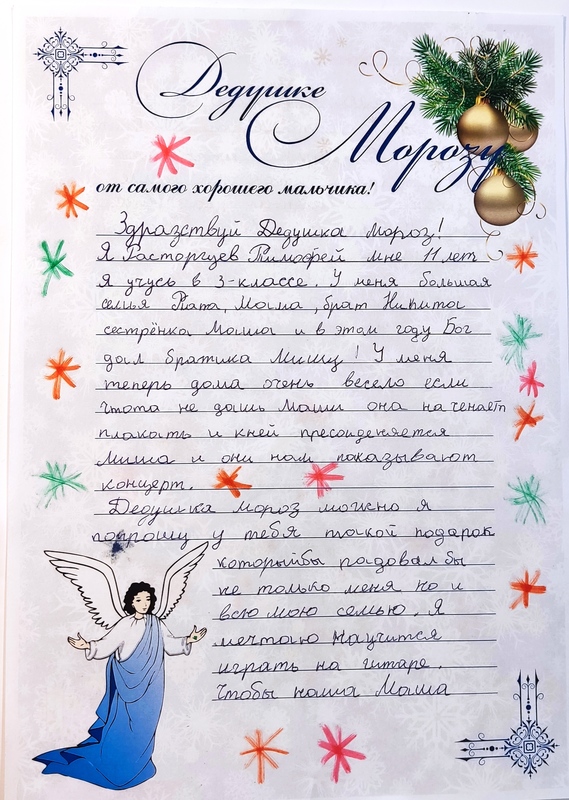 Дедушке
Морозу
от самого хорошего мальчика!
Здразствуй Дедушка Мороз!
Я Расторгуев Тимофей мне 11 лет
Я учусь в 3-классе. У меня большая
семья Папа, Мама, брат Никита
сестрёнка Маша и в этом году Бог
дал братика Мишу! У меня
теперь дома очень весело если
чтота не дашь Маши она наченает
плакать и кней пресоиденяется
Миша и они нам показывают
концерт.
Дедушка мороз можно я
попрошу у тебя такой подарок
которыйбы радовалбы
не только меня но и
всю мою семью. Я
мечтаю Научится
играть на гитаре.
Чтобы наша Маша